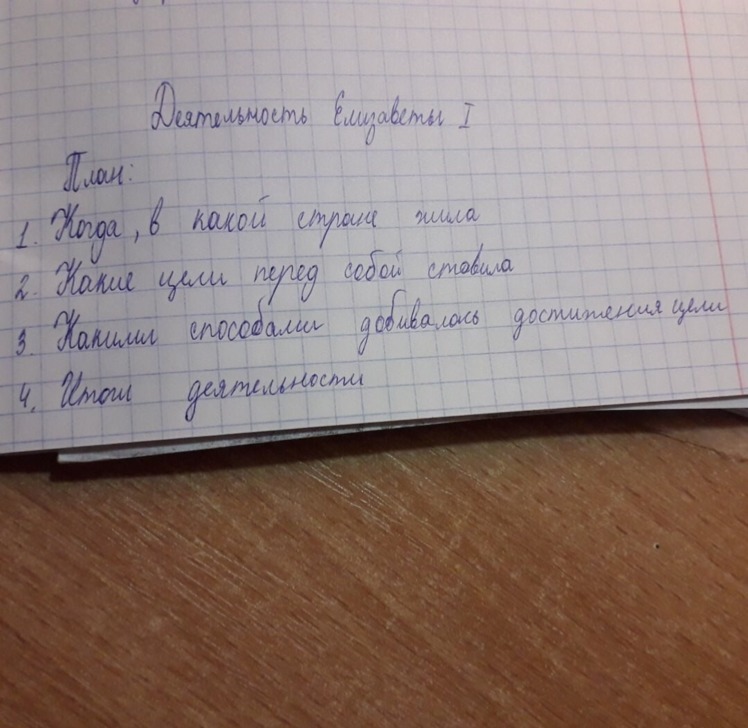 Деятельность Елизаветы I
План:
1. Когда, в какой стране жила
2. Какие цели перед собой ставила
3. Какими способами добивалась достижения цели
4. Итоги деятельности